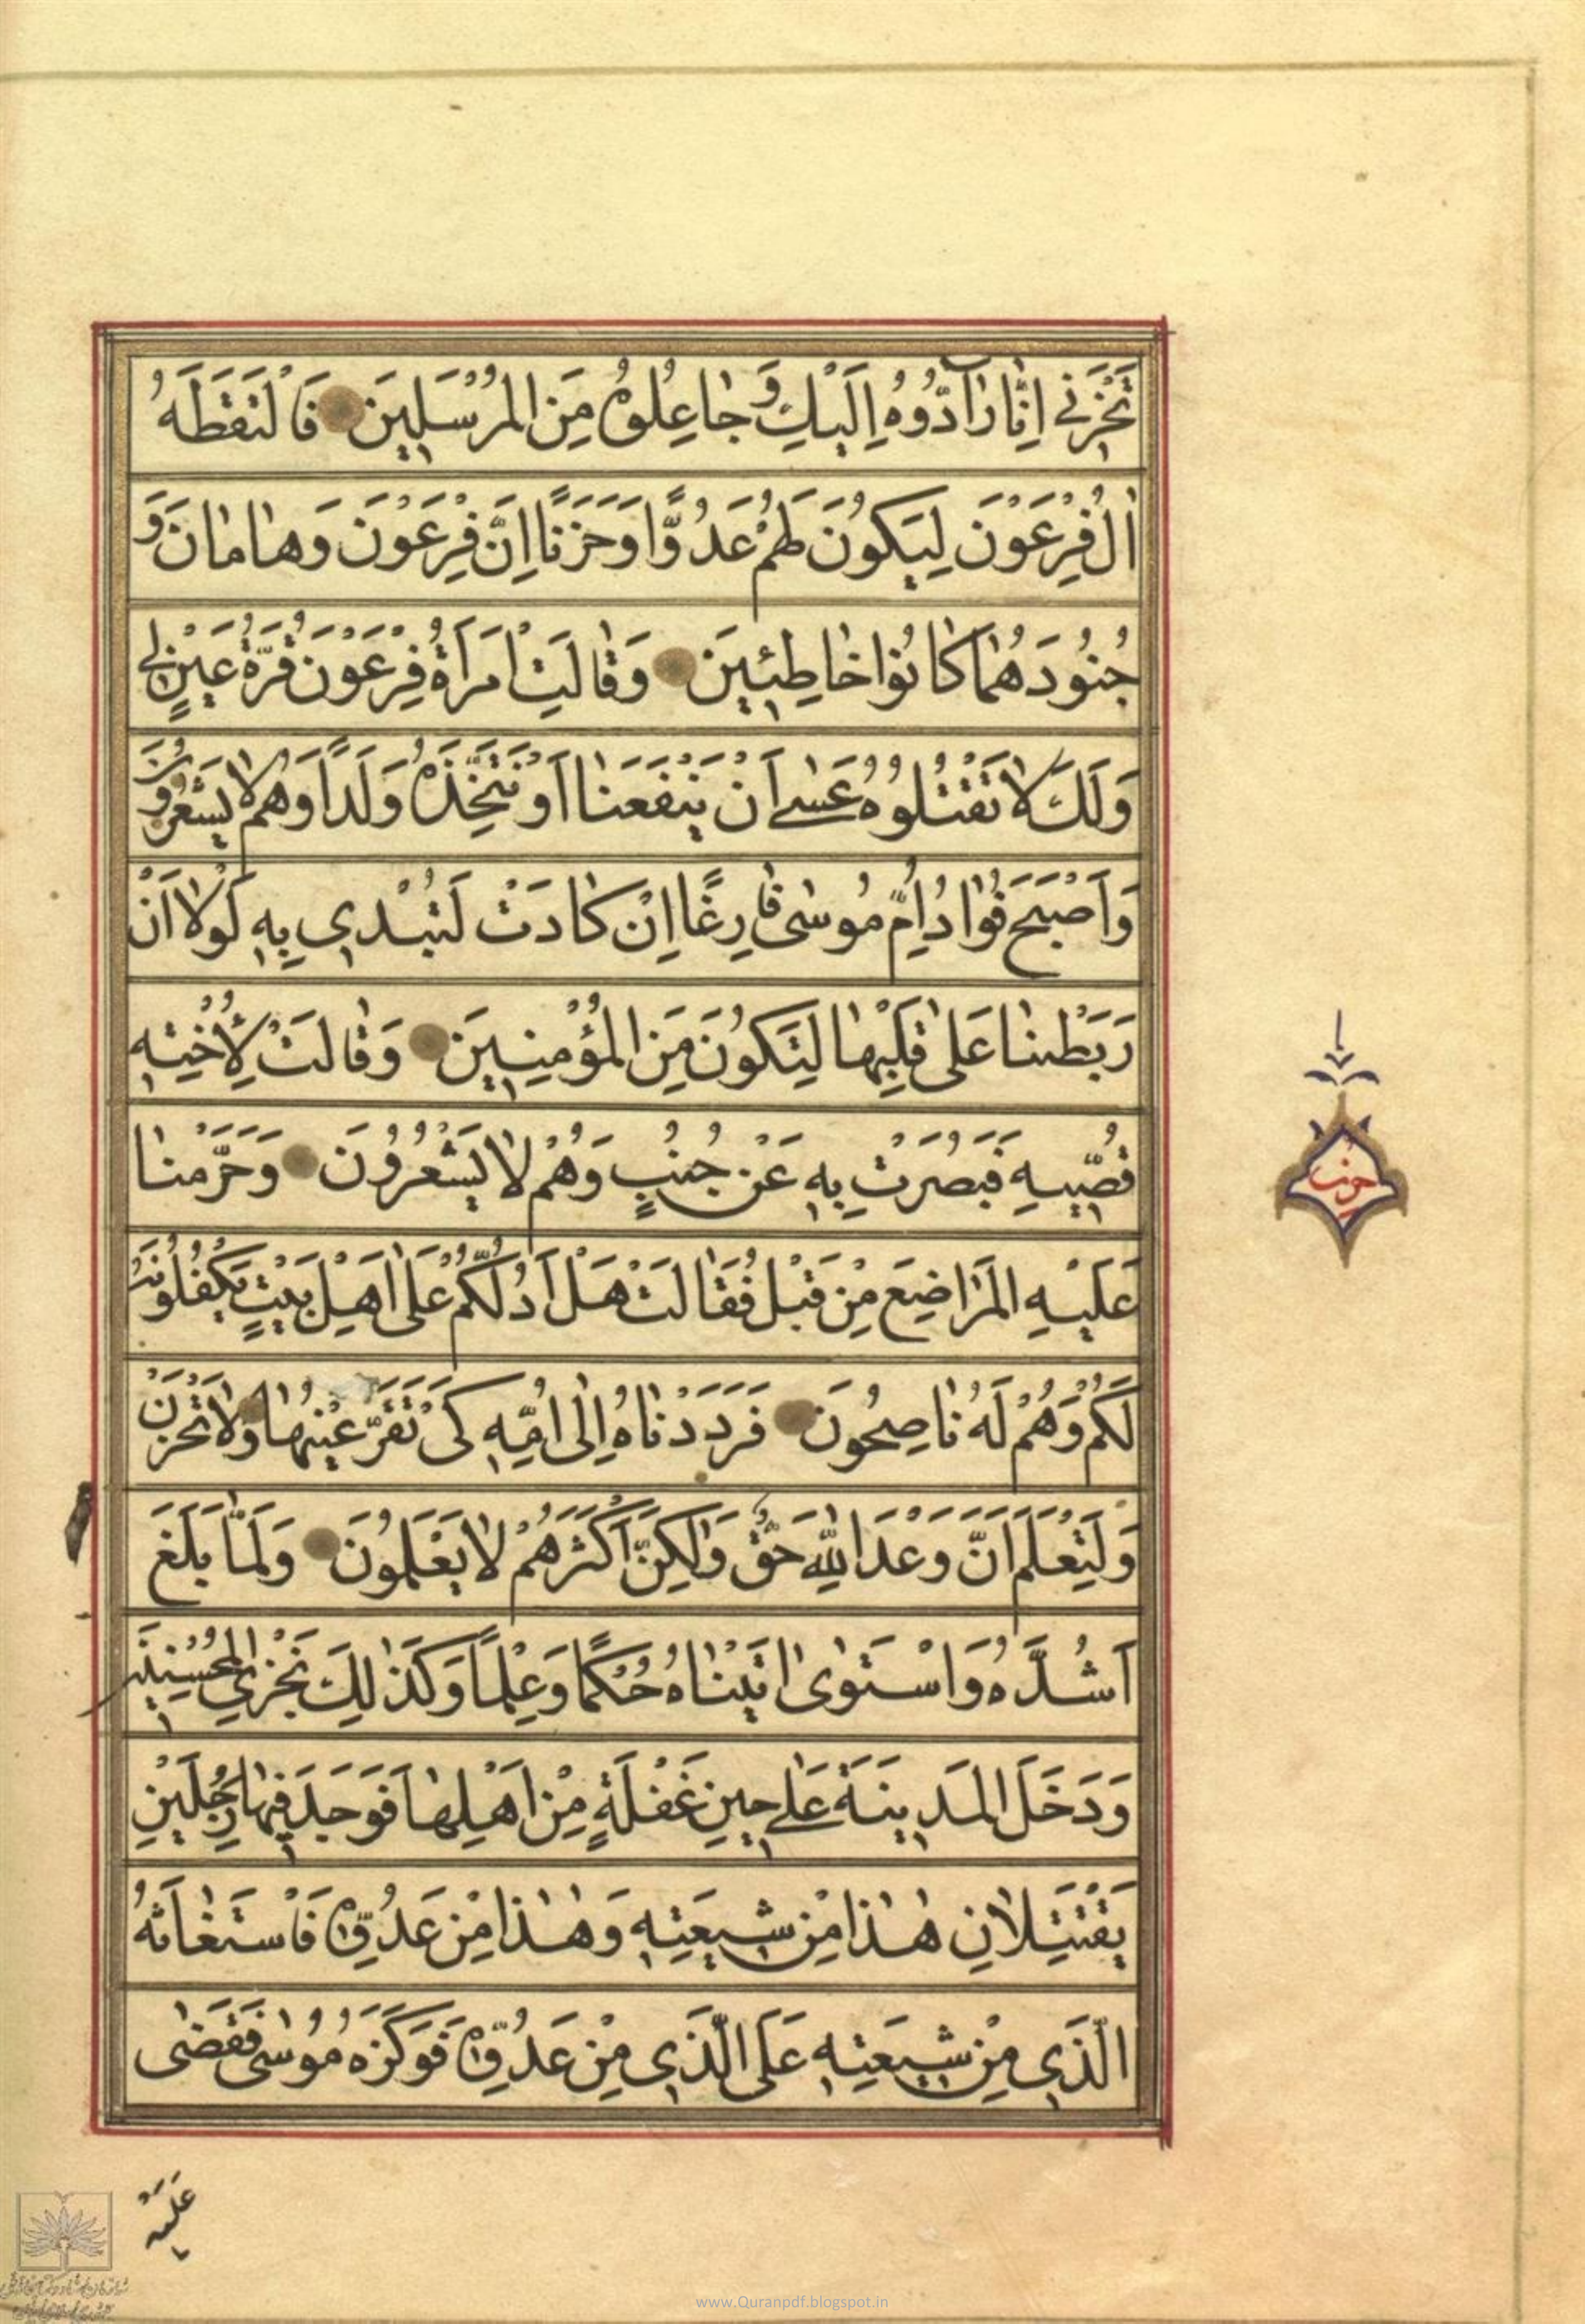 تَحْزَنِي اِنَّا رَآدُّوُهُ اِلَيْكِ وَ جٰاعِلُوهُ مِنَ الْمُرْسَلِينَ فَالْتَقَطَهُ
اٰلُ فِرْعَوْنَ لِيَكُونَ لَهُمْ عَدُوًّا وَحَزَنًا اِنَّ فِرْعَوْنَ وَهٰامٰانَ وَ
جُنُودَهُمٰا كٰانُوا خٰاطِئِينَ وَقٰالَتِ امْرَاَةُ فِرْعَوْنَ قُرَّةُ عَيْنٍ لِي
وَلَكَ لاٰ تَقْتُلُوُهُ عَسٰى اَنْ يَنْفَعَنٰا اَوْ نَتَّخِذَهُ وَلَدًا وَهُمْ لاٰ يَشْعُرُونَ
وَاَصْبَحَ فُؤٰادُ اُمِّ مُوسٰى فٰارِغًا اِنْ كٰادَتْ لَتُبْدِي بِهِ لَوْلاٰ اَنْ
رَبَطْنٰا عَلٰى قَلْبِهٰا لِتَكُونَ مِنَ الْمُؤْمِنِينَ وَقٰالَتْ لِاُخْتِهِ
قُصِّيهِ فَبَصُرَتْ بِهِ عَنْ جُنُبٍ وَهُمْ لاٰ يَشْعُرُونَ وَحَرَّمْنٰا
عَلَيْهِ الْمَرٰاضِعَ مِنْ قَبْلُ فَقٰالَتْ هَلْ اَدُلُّكُمْ عَلٰى اَهْلِ بَيْتٍ يَكْفُلُونَهُ
لَكُمْ وَهُمْ لَهُ نٰاصِحُونَ فَرَدَدْنٰاهُ اِلٰى اُمِّهِ كَىْ تَقَرَّ عَيْنُهٰا وَلاٰ تَحْزَنَ
وَلِتَعْلَمَ اَنَّ وَعْدَ اللّٰهِ حَقٌّ وَلٰكِنَّ اَكْثَرَهُمْ لاٰ يَعْلَمُونَ وَلَمّٰا بَلَغَ
اَشُدَّهُ وَاسْتَوٰى اٰتَيْنٰاهُ حُكْمًا وَعِلْمًا وَكَذٰلِكَ نَجْزِي الْمُحْسِنِينَ
وَدَخَلَ الْمَدِينَةَ عَلٰى حِينِ غَفْلَةٍ مِنْ اَهْلِهٰا فَوَجَدَ فِيهٰا رَجُلَيْنِ
يَقْتَتِلاٰنِ هٰذٰا مِنْ شِيعَتِهِ وَهٰذٰا مِنْ عَدُوِّهِ فَاسْتَغٰاثَهُ
الَّذِي مِنْ شِيعَتِهِ عَلَى الَّذِي مِنْ عَدُوِّهِ فَوَكَزَهُ مُوسٰى فَقَضٰى
عَلَيْهِ
حزب
www.Quranpdf.blogspot.in